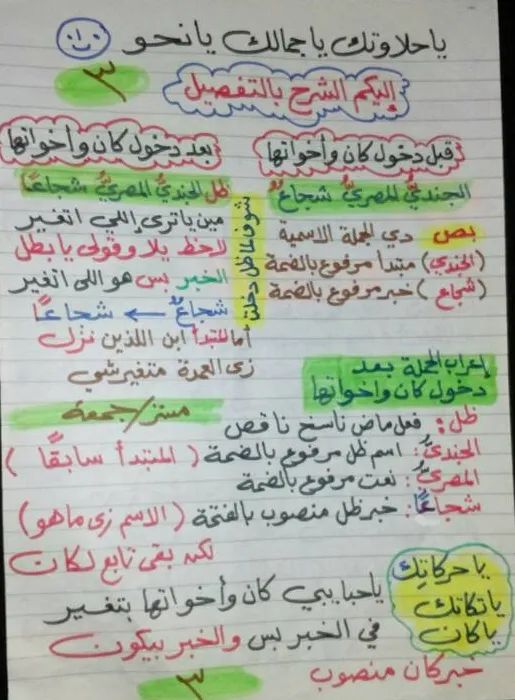 يا حلاوتك يا جمالك يا نحو
٣
إليكم الشرح بالتفصيل
قبل دخول كان وأخواتها
الجنديُّ المصريُّ شجاعٌ
بص دي الجملة الاسمية
(الجندي) مبتدأ مرفوع بالضمة
(شجاع) خبر مرفوع بالضمة
شوف لما ظل دخلت
بعد دخول كان وأخواتها
ظل الجنديُّ المصريُّ شجاعًا
مين يا ترى إللي اتغير
لاحظ يلا وقولي يا بطل
الخبر بس هو اللى اتغير
شجاعٌ ← شجاعًا
أما المبتدأ ابن اللذين نزل
زى العمدة متغيرشي
مستر/جمعة
إعراب الجملة بعد
دخول كان واخواتها
ظل: فعل ماض ناسخ ناقص
الجنديُّ: اسم ظل مرفوع بالضمة (المبتدأ سابقًا)
المصريُّ: نعت مرفوع بالضمة
شجاعًا: خبر ظل منصوب بالفتحة (الاسم زى ماهو)
لكن بقى تابع لكان
يا حركاتك
يا تكاتك
يا كان
يا حبايبي كان وأخواتها بتغير
في الخبر بس والخبر بيكون
خبر كان منصوب
٣